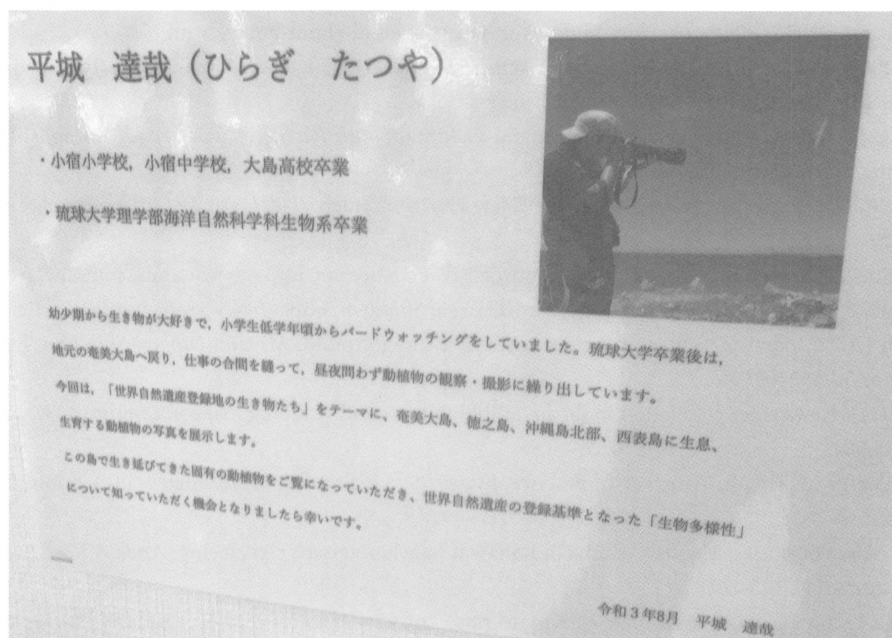 平城　達哉（ひらぎ　たつや）
・小宿小学校，小宿中学校，大島高校卒業
・琉球大学理学部海洋自然科学科生物系卒業
幼少期から生き物が大好きで，小学生低学年頃からバードウォッチングをしていました。琉球大学卒業後は，
地元の奄美大島へ戻り，仕事の合間を縫って，昼夜問わず動植物の観察・撮影に繰り出しています。
今回は，「世界自然遺産登録地の生き物たち」をテーマに、奄美大島、徳之島、沖縄島北部、西表島に生息、
生育する動植物の写真を展示します。
この島で生き延びてきた固有の動植物をご覧になっていただき、世界自然遺産の登録基準となった「生物多様性」
について知っていただく機会となりましたら幸いです。
令和３年8月　平城　達哉